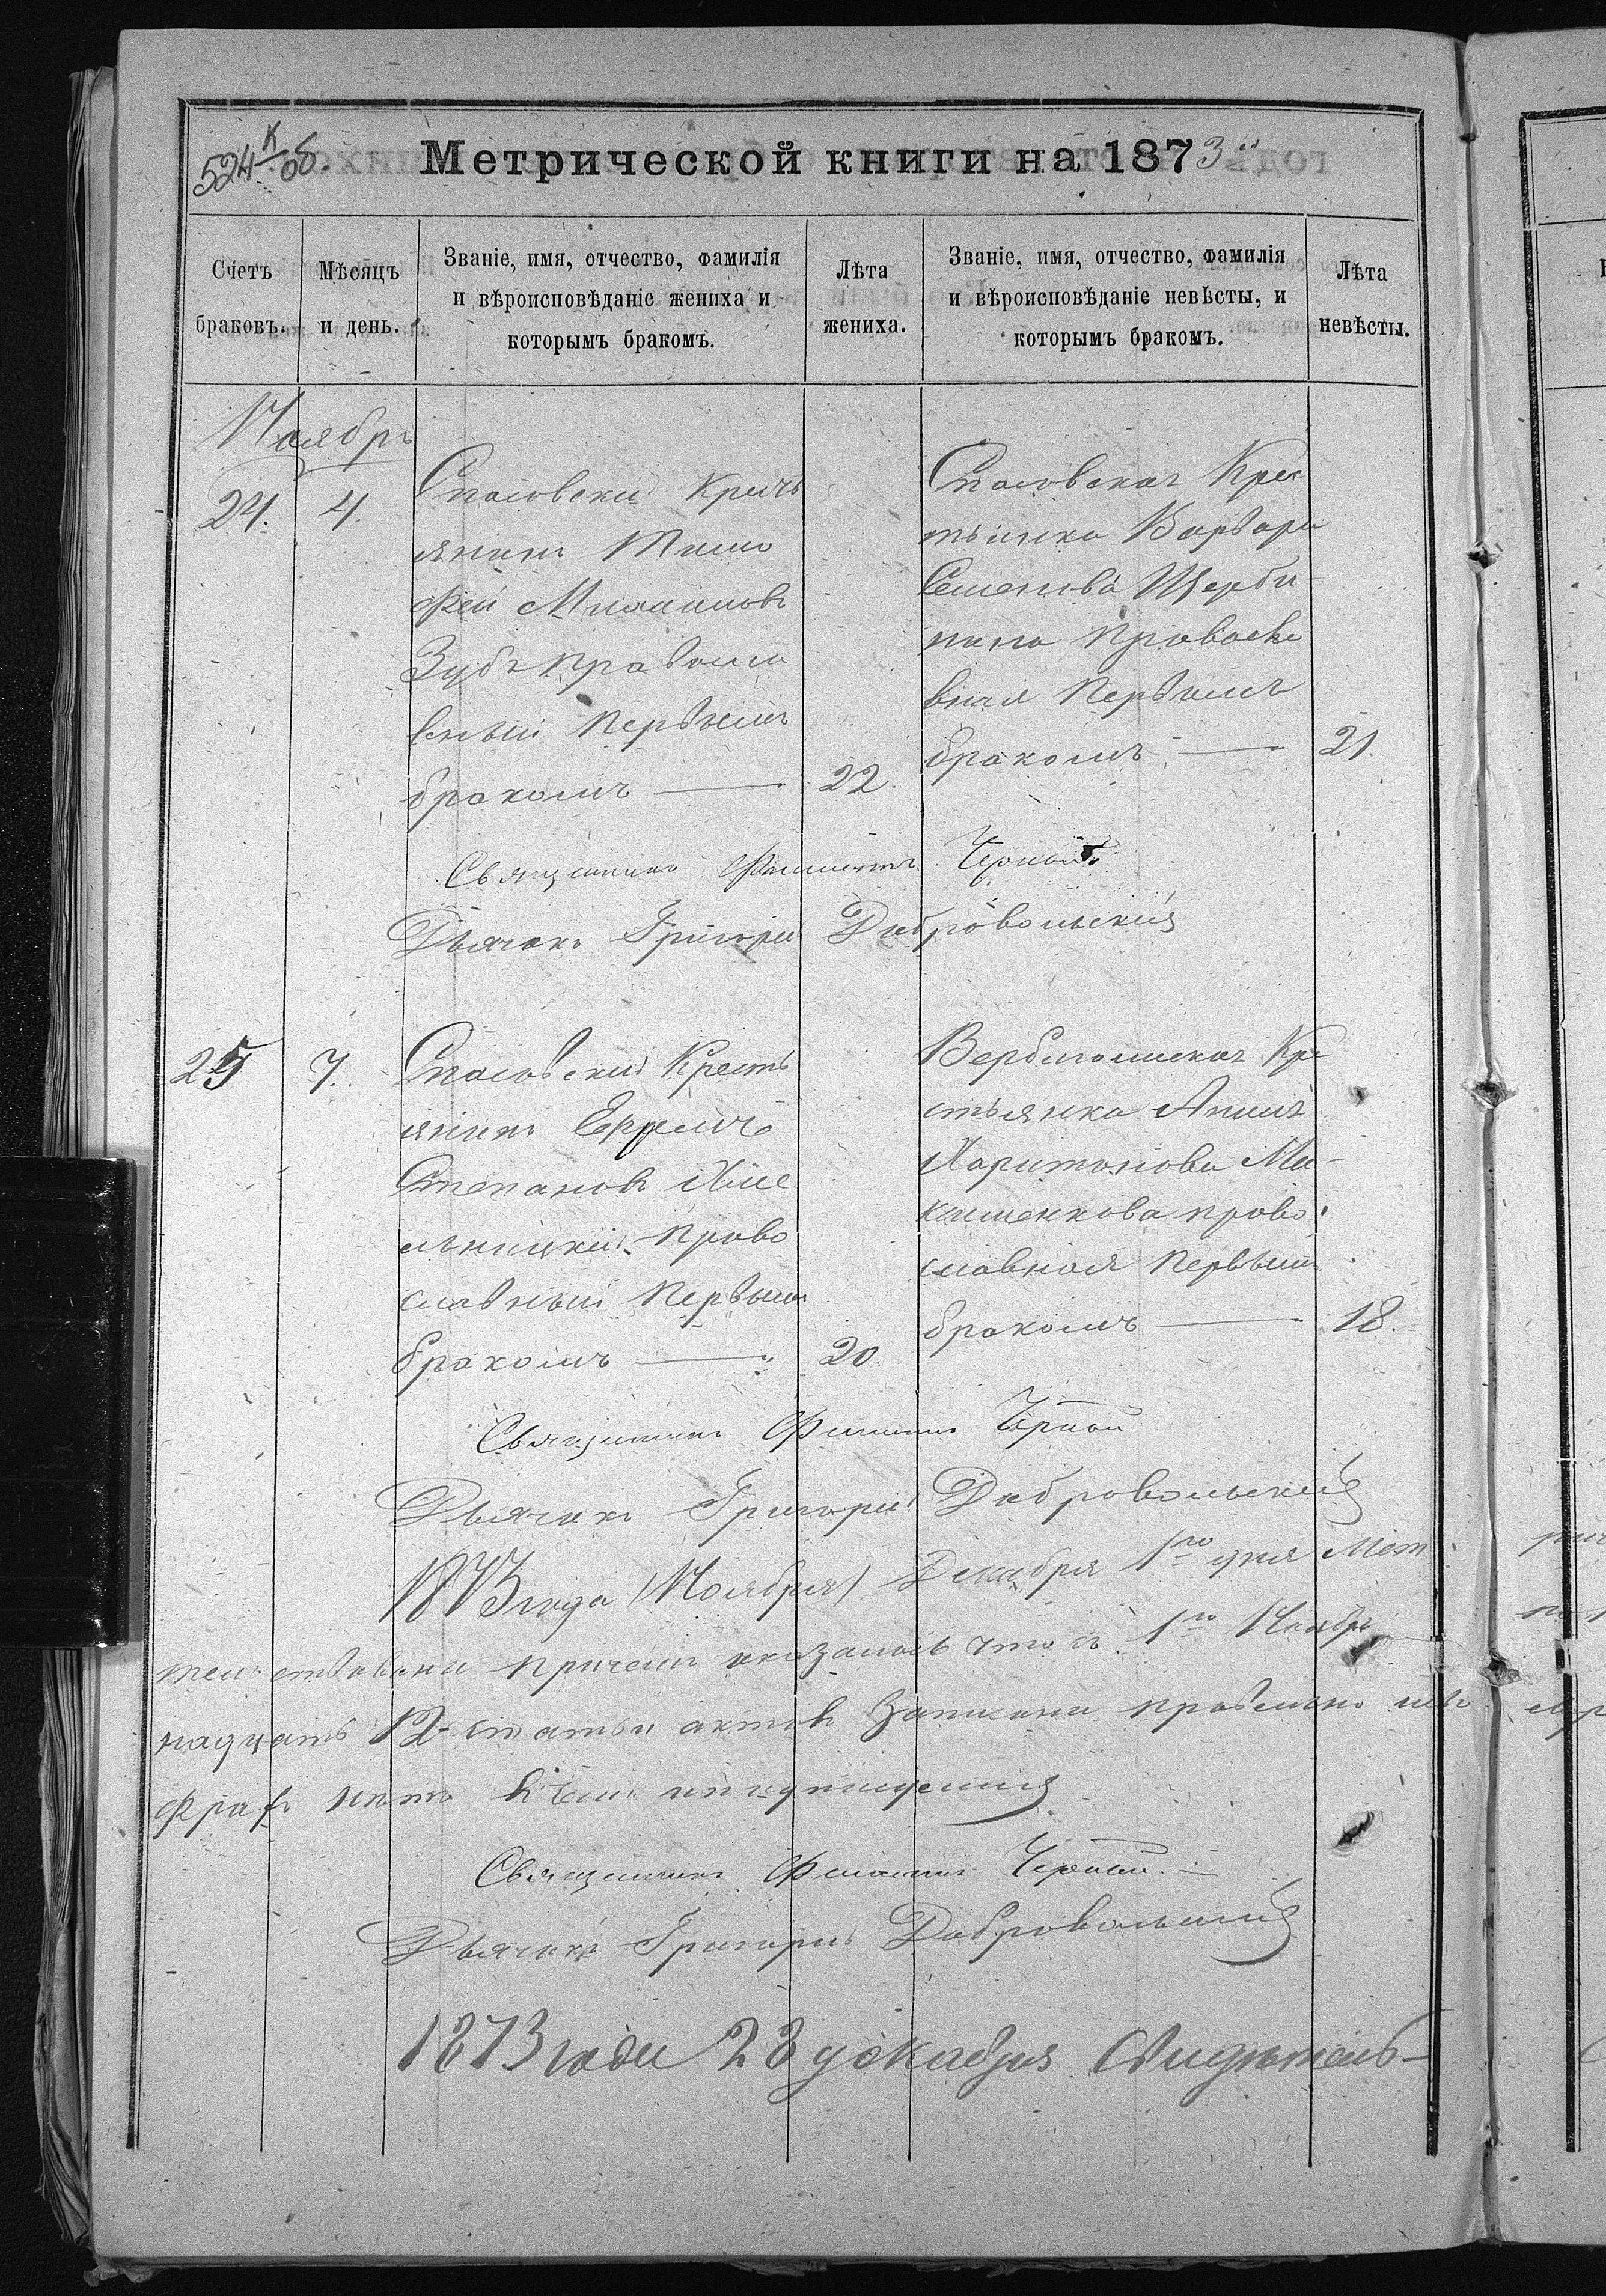 524 К об.
Метрической книги на 1873й
Счетъ браковъ.
Мѣсяцъ и день.
Званіе, имя, отчество, фамилія и вѣроисповѣданіе жениха и которымъ бракомъ.
Лѣта жениха.
Званіе, имя, отчество, фамилія и вѣроисповѣданіе невѣсты, и которымъ бракомъ.
Лѣта невѣсты.
Ноябрь
24. 4.
Спасовский Кресть
янинъ Тимо
фей
Зубъ Правосла
вный Первымъ
бракомъ — 22
Спасовская Крес
тьянка Варвара
Семенова Щерби-
нина Правосла
вная Первымъ
бракомъ — 21.
Священникъ Филиппъ Черный
Дьячекъ Григорий Добровольский
25 7.
Спасовский Кресть
янинъ Ефремъ
Степановъ Хме
льницкий Право
славный Первымъ
бракомъ — 20.
Крe
стьянка
Харитонова Ма-
каменкова право
славная Первымъ
бракомъ — 18.
Священникъ Филиппъ Черный
Дьячекъ Григорий Добровольский
1873 года (Ноября) Декабря 1го дня
причемъ оказалось что съ 1го Ноября
надцать 12 статьи актовъ записаны правельно
графъ нетъ
Священникъ Филиппъ Черный. —
Дьячекъ Григорий Добровольский
1873 года 28 декабря Свидѣтель-